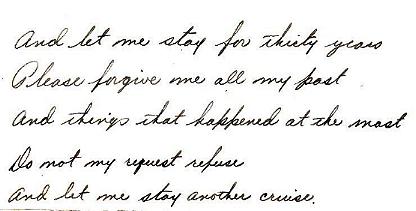 And let me stay for thirty years
Please forgive me all my past
And things that happened at the mast
Do not my request refuse
And let me stay another cruise.